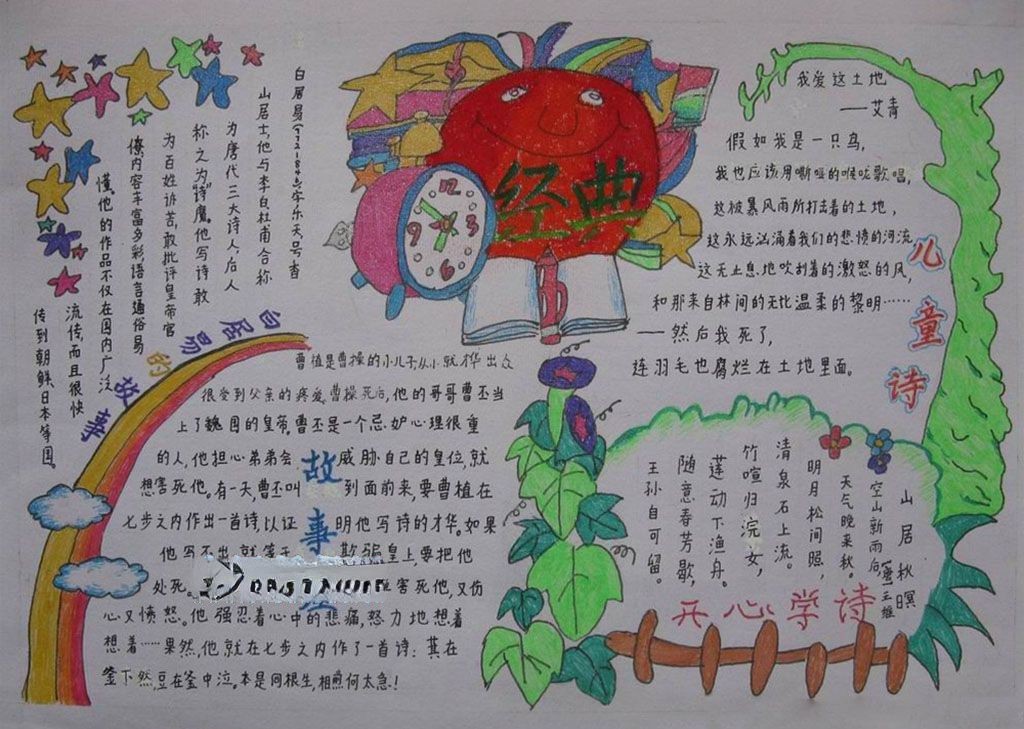 经典
12
3
6
9
白居易(772846)字乐天号香
山居士,他与李白杜甫合称
为唐代三大诗人,后人
称之为“诗”魔。他写诗敢
为百姓诉苦,敢批评皇帝官
僚,内容丰富多彩,语言通俗易
懂。他的作品不仅在国内广泛
流传,而且很快
传到朝鲜、日本等国。
白居易的故事
曹植是曹操的小儿子,从小就才华出众
很受到父亲的疼爱,曹操死后,他的哥哥曹丕当
上了魏国的皇帝,曹丕是一个忌妒心理很重
的人,他担心弟弟会威胁自己的皇位,就
想害死他。有一天,曹丕叫到面前来,要曹植在
七步之内作出一首诗,以证明他写诗的才华。如果
他写不出,就等于欺骗皇上要把他
处死。害死他,又伤
心又愤怒。他强忍着心中的悲痛,努力地想着
想着……果然,他就在七步之内作了一首诗:萁在
釜下然,豆在釜中泣。本是同根生,相煎何太急!
故事
我爱这土地
——艾青
假如我是一只鸟,
我也应该用嘶哑的喉咙歌唱,
这被暴风雨所打击着的土地,
这永远汹涌着我们的悲愤的河流
这无止息地吹刮着的激怒的风,
和那来自林间的无比温柔的黎明……
——然后我死了,
连羽毛也腐烂在土地里面。
儿童诗
山居秋暝
(唐)王维
空山新雨后,
天气晚来秋。
明月松间照,
清泉石上流。
竹喧归浣女,
莲动下渔舟。
随意春芳歇,
王孙自可留。
开心学诗